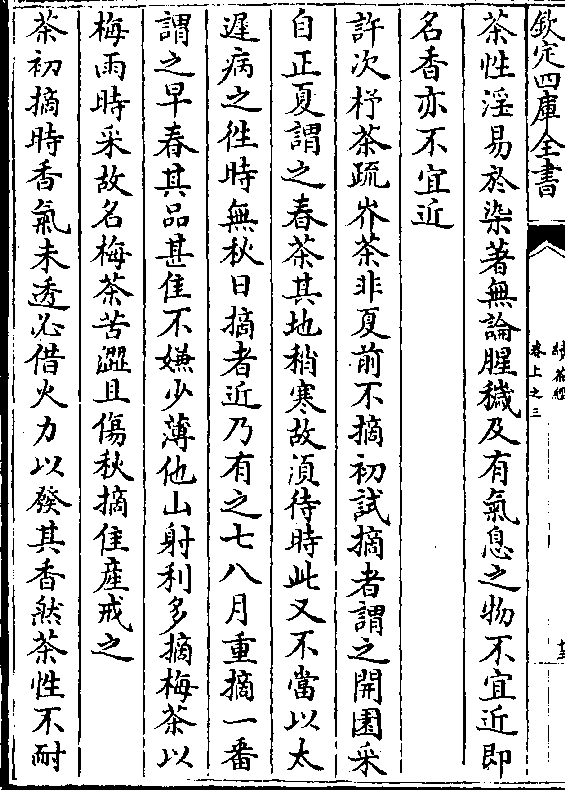 欽定四庫全書
續茶經
卷上之三
茶性淫易於染著無論腥穢及有氣息之物不宜近即
名香亦不宜近
許次杼茶疏岕茶非夏前不摘初試摘者謂之開園采
自正夏謂之春茶其地稍寒故湏待時此又不當以太
遲病之徃時無秋日摘者近乃有之七八月重摘一番
謂之早春其品甚佳不嫌少薄他山射利多摘梅茶以
梅雨時采故名梅茶苦澀且傷秋摘佳産戒之
茶初摘時香氣未透必借火力以發其香然茶性不耐